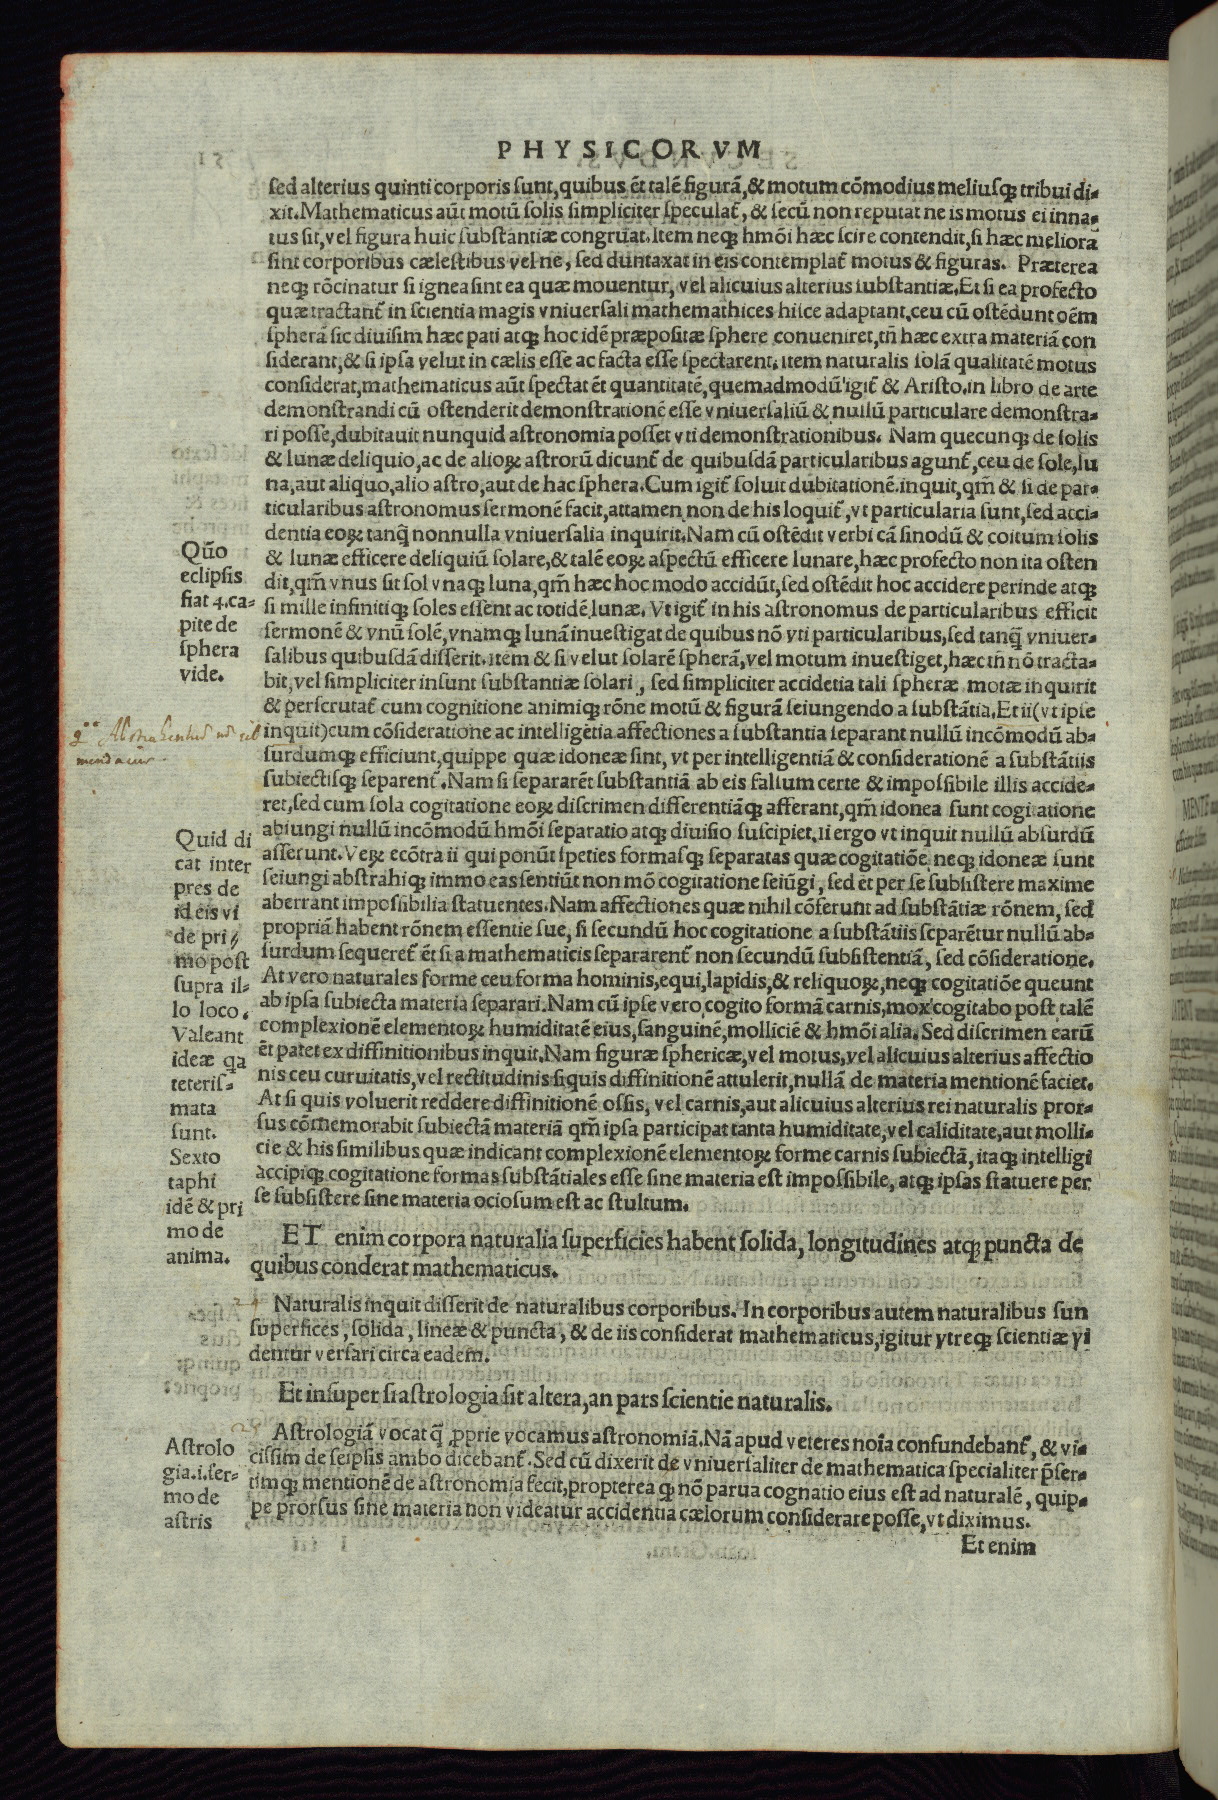 PHYSICORVM
sed alterius quinti corporis sunt, quibus ēt talē figurā, & motum cōmodius meliusq; tribui di-
xit. Mathematicus aūt motū solis simpliciter speculat̄, & secū non reputat ne is motus ei inna-
tus sit, vel figura huic substantiæ congruat. Item neq; hmōi hæc scire contendit, si hæc meliora
sint corporibus cælestibus vel ne, sed duntaxat in eis contemplat̄ motus & figuras. Præterea
neq; rōcinatur si ignea sint ea quæ mouentur, vel alicuius alterius substantiæ. Et si ea profecto
quæ tractant̄ in scientia magis vniuersali mathemathices hisce adaptant. ceu cū ostēdunt oēm
spherā sic diuisim hæc pati atq; hoc idē præpositæ sphere conueniret, tñ hæc extra materiā con
siderant, & si ipsa velut in cælis esse ac facta esse spectarent. item naturalis solā qualitatē motus
considerat, mathematicus aūt spectat ēt quantitatē, quemadmodū igit̄ & Aristo. in libro de arte
demonstrandi cū ostenderit demonstrationē esse vniuersaliū & nullū particulare demonstra-
ri posse, dubitauit nunquid astronomia posset vti demonstrationibus. Nam quecunq; de solis
& lunæ deliquio, ac de alioꝝ astrorū dicunt̄ de quibusdā particularibus agunt̄, ceu de sole, lu
na, aut aliquo, alio astro, aut de hac sphera. Cum igit̄ soluit dubitationē. inquit, qm̄ & si de par-
ticularibus astronomus sermonē facit, attamen non de his loquit̄, vt particularia sunt, sed acci-
dentia eoꝝ tanq̄ nonnulla vniuersalia inquirit. Nam cū ostēdit verbi cā sinodū & coitum solis
& lunæ efficere deliquiū solare, & talē eoꝝ aspectū efficere lunare, hæc profecto non ita osten
dit, qm̄ vnus sit sol vnaq; luna, qm̄ hæc hoc modo accidūt, sed ostēdit hoc accidere perinde atq;
si mille infinitiq; soles essent ac totidē lunæ. Vt igit̄ in his astronomus de particularibus efficit
sermonē & vnū solē, vnamq; lunā inuestigat de quibus nō vti particularibus, sed tanq̄ vniuer-
salibus quibusdā disserit. item & si velut solarē spherā, vel motum inuestiget, hæc tñ nō tracta-
bit, vel simpliciter insunt substantiæ solari, sed simpliciter accidetia tali spheræ motæ inquirit
& perscrutat̄ cum cognitione animiq; rōne motū & figurā seiungendo a substātia. Et ii (vt ipse
inquit) cum cōsideratione ac intelligētia affectiones a substantia separant nullū incōmodū ab-
surdumq; efficiunt, quippe quæ idoneæ sint, vt per intelligentiā & considerationē a substātiis
subiectisq; separent̄. Nam si separarēt substantiā ab eis falsum certe & impossibile illis accide-
ret, sed cum sola cogitatione eoꝝ discrimen differentiāq; afferant, qm̄ idonea sunt cogitatione
abiungi nullū incōmodū hmōi separatio atq; diuisio suscipiet. Ii ergo vt inquit nullū absurdū
asserunt. Veꝝ ecōtra ii qui ponūt speties formasq; separatas quæ cogitatiōe neq; idoneæ sunt
seiungi abstrahiq; immo eas sentiūt non mō cogitatione seiūgi, sed et per se subsistere maxime
aberrant impossibilia statuentes. Nam affectiones quæ nihil cōferunt ad substātiæ rōnem, sed
propriā habent rōnem essentie sue, si secundū hoc cogitatione a substātiis separētur nullū ab-
surdum sequeret̄ ēt si a mathematicis separarent̄ non secundū subsistentiā, sed cōsideratione.
At vero naturales forme ceu forma hominis, equi, lapidis, & reliquoꝝ, neq; cogitatiōe queunt
ab ipsa subiecta materia separari. Nam cū ipse vero cogito formā carnis, mox cogitabo post talē
complexionē elementoꝝ humiditatē eius, sanguinē, molliciē & hmōi alia. Sed discrimen earū
ēt patet ex diffinitionibus inquit. Nam figuræ sphericæ, vel motus, vel alicuius alterius affectio
nis ceu curuitatis, vel rectitudinis si quis diffinitionē attulerit, nullā de materia mentionē faciet.
At si quis voluerit reddere diffinitionē ossis, vel carnis, aut alicuius alterius rei naturalis pror-
sus cōmemorabit subiectā materiā qm̄ ipsa participat tanta humiditate, vel caliditate, aut molli-
cie & his similibus quæ indicant complexionē elementoꝝ forme carnis subiectā, itaq; intelligi
accipiq; cogitatione formas substātiales esse sine materia est impossibile, atq; ipsas statuere per
se subsistere sine materia ociosum est ac stultum.
ET enim corpora naturalia superficies habent solida, longitudines atq; puncta de
quibus conderat mathematicus.
Naturalis inquit disserit de naturalibus corporibus. In corporibus autem naturalibus sun
superfices, solida, lineæ & puncta, & de iis considerat mathematicus, igitur vtreq; scientiæ vi
dentur versari circa eadem.
Et insuper si astrologia sit altera, an pars scientie naturalis.
Astrologiā vocat q̄ ꝓprie vocamus astronomiā. Nā apud veteres noīa confundebant̄, & vi-
cissim de seipsis ambo dicebant̄. Sed cū dixerit de vniuersaliter de mathematica specialiter p̄ser-
timq; mentionē de astronomia fecit, propterea q; nō parua cognatio eius est ad naturalē, quip-
pe prorsus sine materia non videatur accidentia cælorum considerare posse, vt diximus.
Et enim
Quō
eclipsis
fiat 4. ca-
pite de
sphera
vide.
Quid di
cat inter
pres de
ideis vi
de pri
mo post
supra il-
lo loco.
Valeant
ideæ qa
teteris-
mata
sunt.
Sexto
taphi
idē & pri
mo de
anima.
Astrolo
gia. i. ser-
mo de
astris